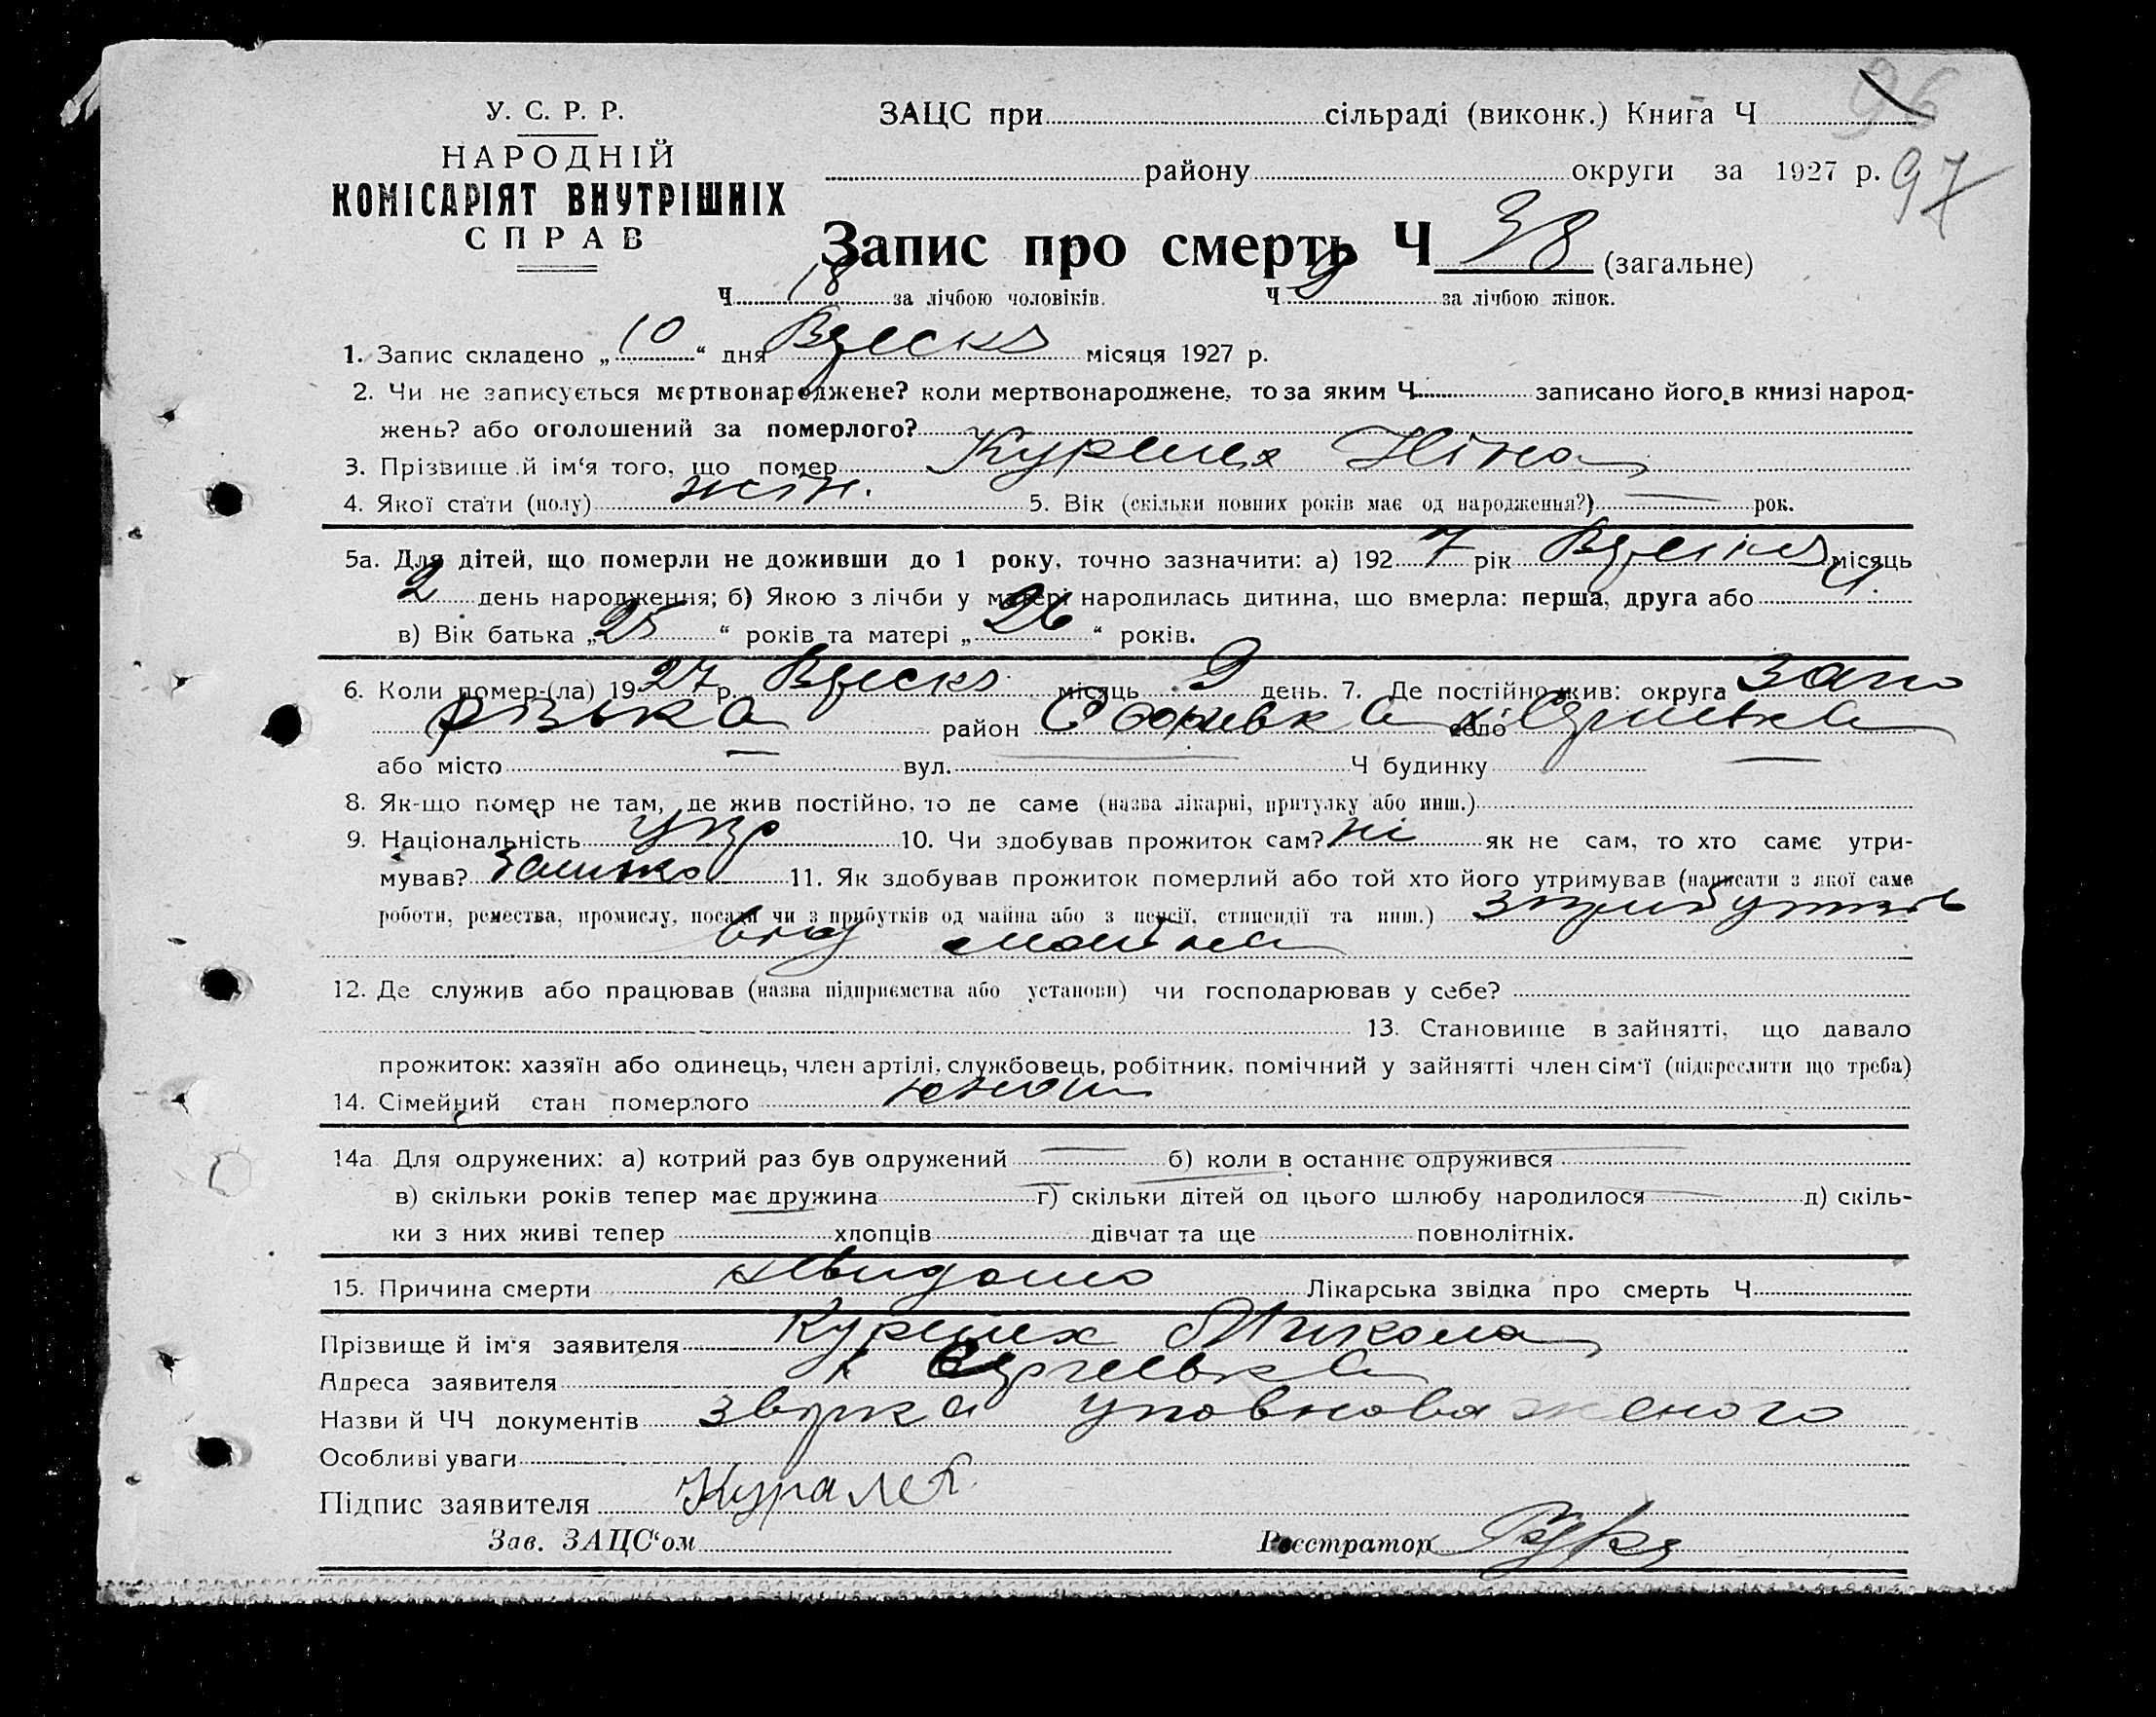 96
У. С. Р. Р.
ЗАЦС при сільраді (виконк.) Книга Ч
НАРОДНІЙ
району округи за 1927 р. 97
КОМІСАРІЯТ ВНУТРІШНІХ
СПРАВ
Запис про смерть Ч 38 (загальне)
Ч 18 за лічбою чоловіків. Ч за лічбою жінок.
1. Запис складено „10“ дня Вереск місяця 1927 р.
2. Чи не записується мертвонароджене? коли мертвонароджене, то за яким Ч записано його в книзі народ-
жень? або оголошений за померлого?
3. Прізвище й ім‘я того, що помер Ніна
4. Якої стати (полу) жін. 5. Вік (скільки повних років має од народження?) — рок.
5а. Для дітей, що померли не доживши до 1 року, точно зазначити: а) 1927 рік місяць
2 день народження; б) Якою з лічби у матері народилась дитина, що вмерла: перша, друга або 4.
в) Вік батька „25“ років та матері „26“ років.
6. Коли помер-(ла) 1927 р. Вереск місяць 9 день. 7. Де постійно жив: округа Запо
різька район село
або місто — вул. — Ч будинку —
8. Як-що помер не там, де жив постійно, то де саме (назва лікарні, притулку або инш.)
9. Національність укр 10. Чи здобував прожиток сам? ні як не сам, то хто саме утри-
мував? 11. Як здобував прожиток померлий або той хто його утримував (написати з якої саме
роботи, ремества, промислу, посади чи з прибутків од майна або з пенсії, стипендії та инш.) з прибутків
від майна
12. Де служив або працював (назва підприємства або установи) чи господарював у себе?
13. Становище в зайнятті, що давало
прожиток: хазяїн або одинець, член артілі, службовець, робітник, помічний у зайнятті член сім‘ї (підкреслити що треба)
14. Сімейний стан померлого
14а Для одружених: а) котрий раз був одружений — б) коли в останнє одружився —
в) скільки років тепер має дружина — г) скільки дітей од цього шлюбу народилося — д) скіль-
ки з них живі тепер хлопців дівчат та ще повнолітніх.
15. Причина смерти невидомо Лікарська звідка про смерть Ч
Прізвище й ім‘я заявителя Микола
Адреса заявителя
Назви й ЧЧ документів уповноваженого
Особливі уваги
Підпис заявителя
Зав. ЗАЦС‘ом Реєстратор